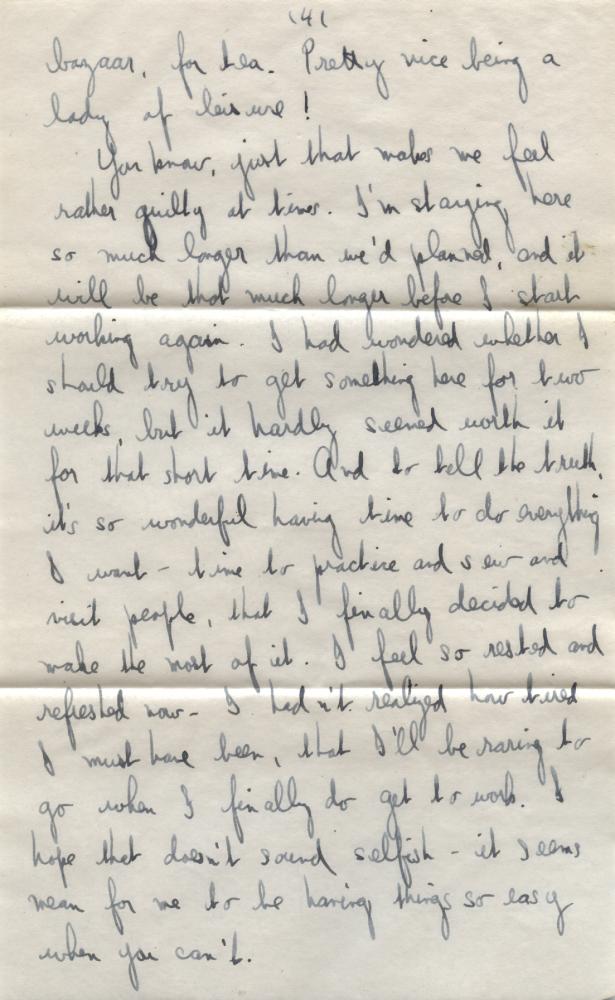 (4)
bazaar, for tea. Pretty nice being a
lady of leisure!
You know, just that makes me feel
rather guilty at times. I'm staying here
so much longer than we'd planned, and it
will be that much longer before I start
working again. I had wondered whether I
should try to get something here for two
weeks, but it hardly seemed worth it
for that short time. And to tell the truth,
it's so wonderful having time to do everything
I want - time to practice and sew and
visit people, that I finally decided to
make the most of it. I feel so rested and
refreshed now - I hadn't realized how tired
I must have been, that I'll be raring to
go when I finally do get to work. I
hope that doesn't sound selfish - it seems
mean for me to be having things so easy
when you can't.